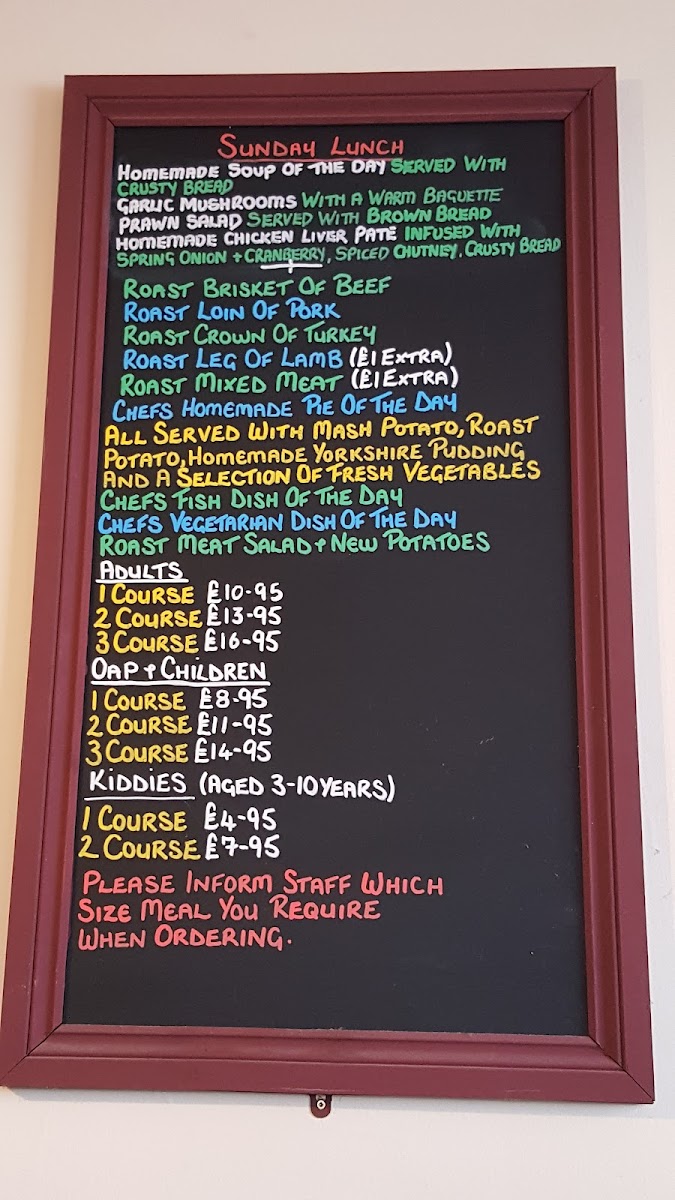 SUNDAY LUNCH
HOMEMADE SOUP OF THE DAY SERVED WITH
CRUSTY BREAD
GARLIC MUSHROOMS WITH A WARM BAGUETTE
PRAWN SALAD SERVED WITH BROWN BREAD
HOMEMADE CHICKEN LIVER PATE INFUSED WITH
SPRING ONION + CRANBERRY, SPICED CHUTNEY, CRUSTY BREAD
ROAST BRISKET OF BEEF
ROAST LOIN OF PORK
ROAST CROWN OF TURKEY
ROAST LEG OF LAMB (£1 EXTRA)
ROAST MIXED MEAT (£1 EXTRA)
CHEFS HOMEMADE PIE OF THE DAY
ALL SERVED WITH MASH POTATO, ROAST
POTATO, HOMEMADE YORKSHIRE PUDDING
AND A SELECTION OF FRESH VEGETABLES
CHEFS FISH DISH OF THE DAY
CHEFS VEGETARIAN DISH OF THE DAY
ROAST MEAT SALAD + NEW POTATOES
ADULTS
1 COURSE £10-95
2 COURSE £13-95
3 COURSE £16-95
OAP + CHILDREN
1 COURSE £8-95
2 COURSE £11-95
3 COURSE £14-95
KIDDIES (AGED 3-10 YEARS)
1 COURSE £4-95
2 COURSE £7-95
PLEASE INFORM STAFF WHICH
SIZE MEAL YOU REQUIRE
WHEN ORDERING.